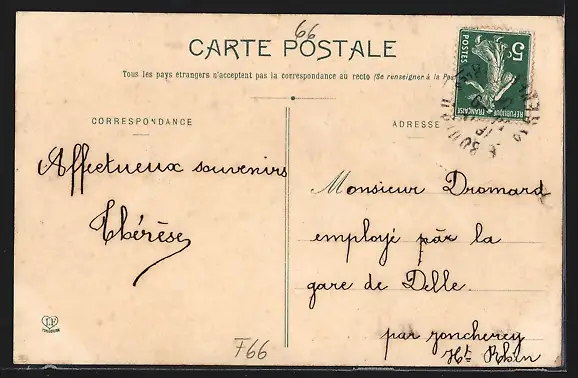 66
CARTE POSTALE
Tous les pays étrangers n'acceptent pas la correspondance au recto (Se renseigner à la Poste
CORRESPONDANCE
ADRESSE
5c
POSTES
REPUBLIQUE FRANÇAISE
Affectueux souvenirs
Thérèse
Monsieur Dromard
employé par la
gare de Delle.
par joncherey
Ht Rhin
F66